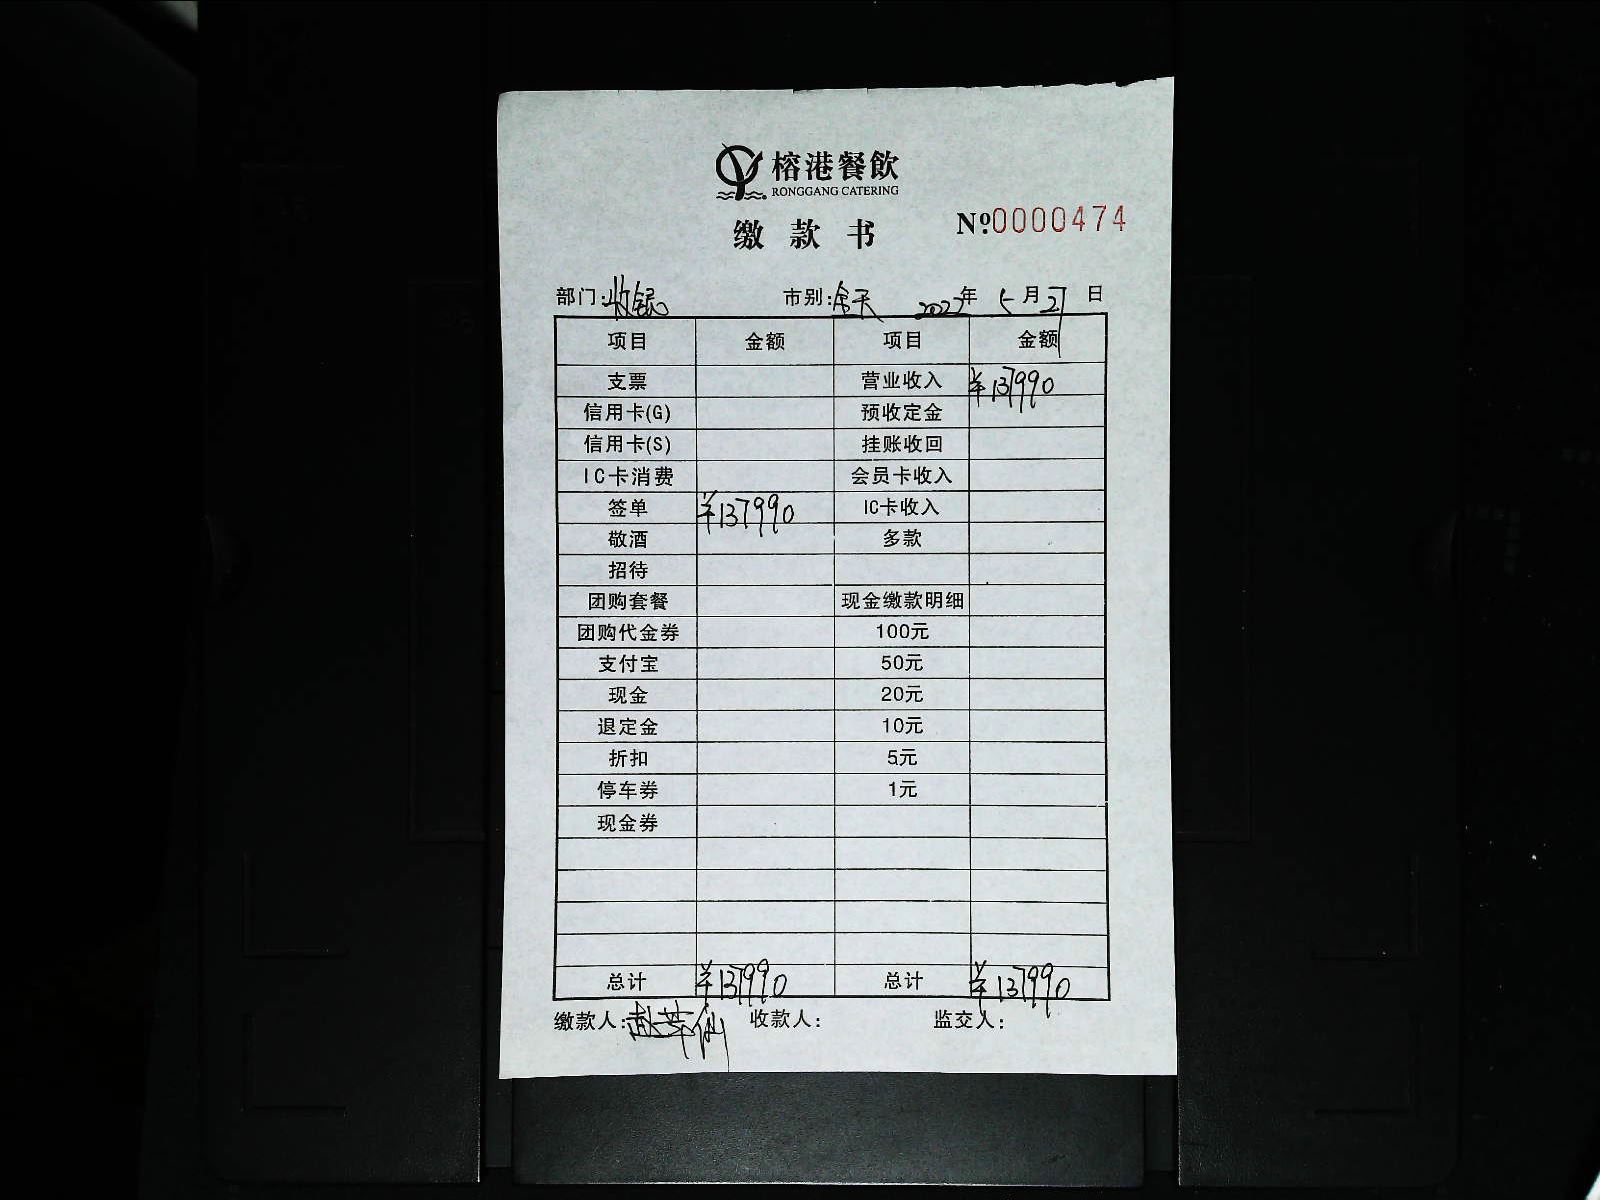 榕港餐飲
RONGGANG CATERING
缴款书 №0000474
部门:收银 市别:全天 2022年5月27日
项目 金额 项目 金额
支票 营业收入 ¥137990
信用卡(G) 预收定金
信用卡(S) 挂账收回
IC卡消费 会员卡收入
签单 ¥137990 IC卡收入
敬酒 多款
招待
团购套餐 现金缴款明细
团购代金券 100元
支付宝 50元
现金 20元
退定金 10元
折扣 5元
停车券 1元
现金券
总计 ¥137990 总计 ¥137990
缴款人: 收款人: 监交人: